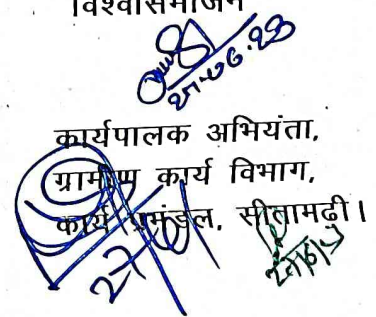 विश्वासभाजन
27.06.23
कार्यपालक अभियंता,
ग्रामीण कार्य विभाग,
कार्य प्रमंडल, सीतामढ़ी।